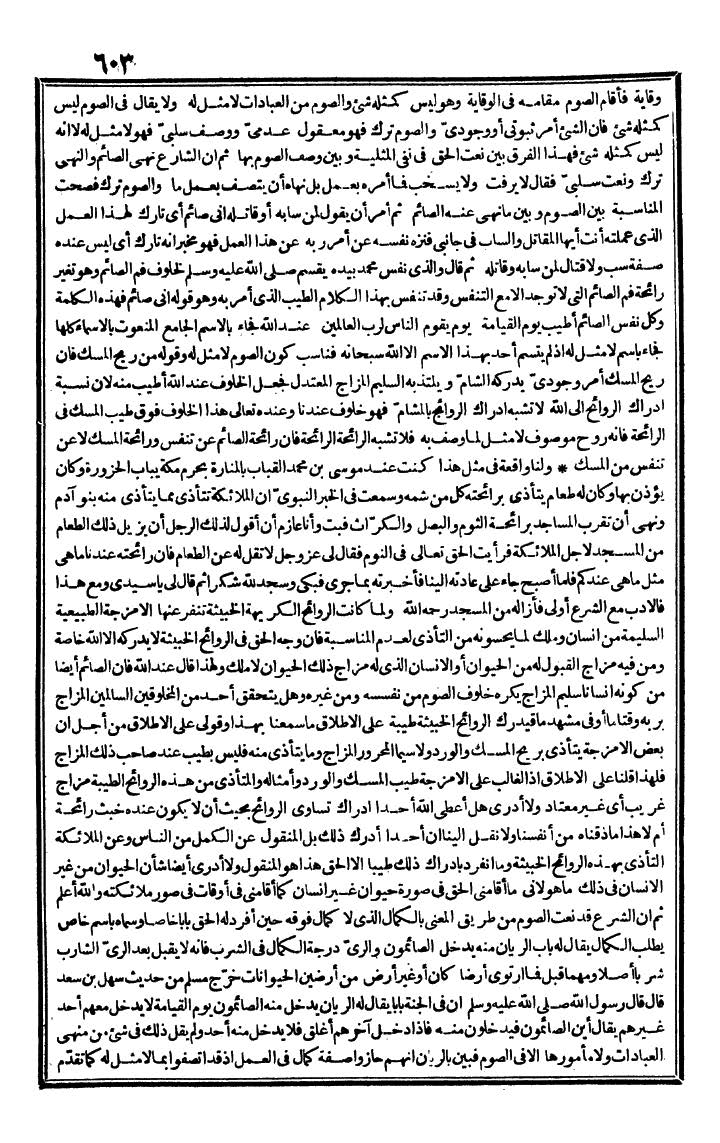 ٦٠٣
وقاية فأقام الصوم مقامه فى الوقاية وهو ليس كمثله شئ والصوم من العبادات لا مثل له ولا يقال فى الصوم ليس
كمثله شئ فان الشئ أمر ثبوتى أو وجودىّ والصوم ترك فهو معقول عدمىّ ووصف سلبىّ فهو لا مثل له لا انه
ليس كمثله شئ فهذا الفرق بين نعت الحق فى نفى المثلية وبين وصف الصوم بها ثم ان الشارع نهى الصائم والنهى
ترك ونعت سلبىّ فقال لا يرفث ولا يسخب فما أمره بعمل بل نهاه أن يتصف بعمل ما والصوم ترك فصحت
المناسبة بين الصوم وبين ما نهى عنه الصائم ثم أمر أن يقول لمن سابه أو قاتله انى صائم أى تارك لهذا العمل
الذى عملته أنت أيها المقاتل والساب فى جانبى فنزه نفسه عن أمر ربه عن هذا العمل فهو مخبر انه تارك أى ليس عنده
صفة سب ولا قتال لمن سابه وقاتله ثم قال والذى نفس محمد بيده يقسم صلى الله عليه وسلم لخلوف فم الصائم وهو تغير
رائحة فم الصائم التى لا توجد الامع التنفس وقد تنفس بهذا الكلام الطيب الذى أمر به وهو قوله انى صائم فهذه الكلمة
وكل نفس الصائم أطيب يوم القيامة يوم يقوم الناس لرب العالمين عند الله فجاء بالاسم الجامع المنعوت بالاسماء كلها
فجاء باسم لا مثل له اذ لم يتسم أحد بهذا الاسم الا الله سبحانه فناسب كون الصوم لا مثل له وقوله من ريح المسك فان
ريح المسك أمر وجودىّ يدركه الشامّ ويلتذ به السليم المزاج المعتدل فجعل الخلوف عند الله أطيب منه لان نسبة
ادراك الروائح الى الله لا تشبه ادراك الروائح بالمشامّ فهو خلوف عندنا وعنده تعالى هذا الخلوف فوق طيب المسك فى
الرائحة فانه روح موصوف لا مثل لما وصف به فلا تشبه الرائحة الرائحة فان رائحة الصائم عن تنفس ورائحة المسك لا عن
تنفس من المسك * ولنا واقعة فى مثل هذا كنت عند موسى بن محمد القباب بالمنارة بحرم مكة بباب الحزورة وكان
يؤذن بها وكان له طعام يتأذى برائحته كل من شمه وسمعت فى الخبر النبوىّ ان الملائكة تتأذى مما يتأذى منه بنو آدم
ونهى أن تقرب المساجد برائحة الثوم والبصل والكرّاث فبت وأنا عازم أن أقول لذلك الرجل أن يزيل ذلك الطعام
من المسجد لاجل الملائكة فرأيت الحق تعالى فى النوم فقال لى عز وجل لا تقل له عن الطعام فان رائحته عندنا ما هى
مثل ما هى عندكم فلما أصبح جاء على عادته الينا فأخبرته بما جرى فبكى وسجد لله شكرا ثم قال لى ياسيدى ومع هذا
فالادب مع الشرع أولى فأزاله من المسجد رحمه الله ولما كانت الروائح الكريهة الخبيثة تنفر عنها الامزجة الطبيعية
السليمة من انسان وملك لما يحسونه من التأذى لعدم المناسبة فان وجه الحق فى الروائح الخبيثة لا يدركه الا الله خاصة
ومن فيه مزاج القبول له من الحيوان أو الانسان الذى له مزاج ذلك الحيوان لا ملك ولهذا قال عند الله فان الصائم أيضا
من كونه انسانا سليم المزاج يكره خلوف الصوم من نفسه ومن غيره وهل يتحقق أحد من المخلوقين السالمين المزاج
بربه وقتا ما أو فى مشهد ما فيدرك الروائح الخبيثة طيبة على الاطلاق ما سمعنا بهذا وقولى على الاطلاق من أجل ان
بعض الامزجة يتأذى بريح المسك والورد ولاسيما المحرور المزاج وما يتأذى منه فليس بطيب عند صاحب ذلك المزاج
فلهذا قلنا على الاطلاق اذ الغالب على الامزجة طيب المسك والورد وأمثاله والمتأذى من هذه الروائح الطيبة مزاج
غريب أى غير معتاد ولا أدرى هل أعطى الله أحدا ادراك تساوى الروائح بحيث أن لا يكون عنده خبث رائحة
أم لا هذا ما ذقناه من أنفسنا ولا نقل الينا ان أحدا أدرك ذلك بل المنقول عن الكمل من الناس وعن الملائكة
التأذى بهذه الروائح الخبيثة وما انفرد بادراك ذلك طيبا الا الحق هذا هو المنقول ولا أدرى أيضا شأن الحيوان من غير
الانسان فى ذلك ما هو لانى ما أقامنى الحق فى صورة حيوان غير انسان كما أقامنى فى أوقات فى صور ملائكته والله أعلم
ثم ان الشرع قد نعت الصوم من طريق المعنى بالكمال الذى لا كمال فوقه حين أفرد له الحق بابا خاصا وسماه باسم خاص
يطلب الكمال يقال له باب الريان منه يدخل الصائمون والرىّ درجة الكمال فى الشرب فانه لا يقبل بعد الرىّ الشارب
شربا أصلا ومهما قبل فما ارتوى أرضا كان أو غير أرض من أرضين الحيوانات خرّج مسلم من حديث سهل بن سعد
قال قال رسول الله صلى الله عليه وسلم ان فى الجنة بابا يقال له الريان يدخل منه الصائمون يوم القيامة لا يدخل معهم أحد
غيرهم يقال أين الصائمون فيدخلون منه فاذا دخل آخرهم أغلق فلا يدخل منه أحد ولم يقل ذلك فى شئ من منهى
العبادات ولا مأمورها الا فى الصوم فبين بالريان انهم حازوا صفة كمال فى العمل اذ قد اتصفوا بما لا مثل له كما تقدّم